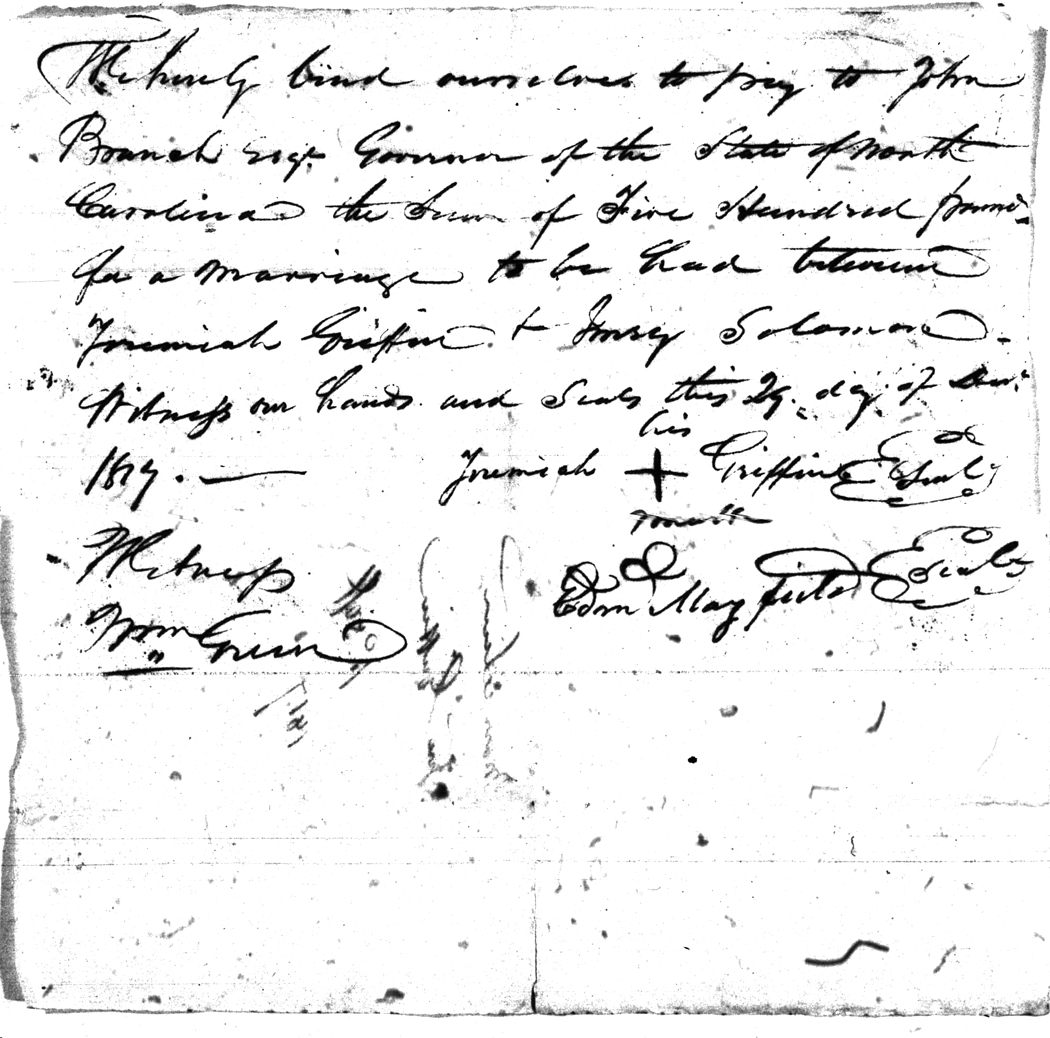 We hereby bind ourselves to pay to John
Branch Esqr. Governor of the State of North
Carolina the Sum of Five Hundred pounds
for a marriage to be had between
Jeremiah Griffin & Solomon.
Witness our hands and Seals this 29. day of Decr.
1819. —
his
Jeremiah + Griffin Seal
mark
Witness
Edm Mayfield Seal
Wm Green